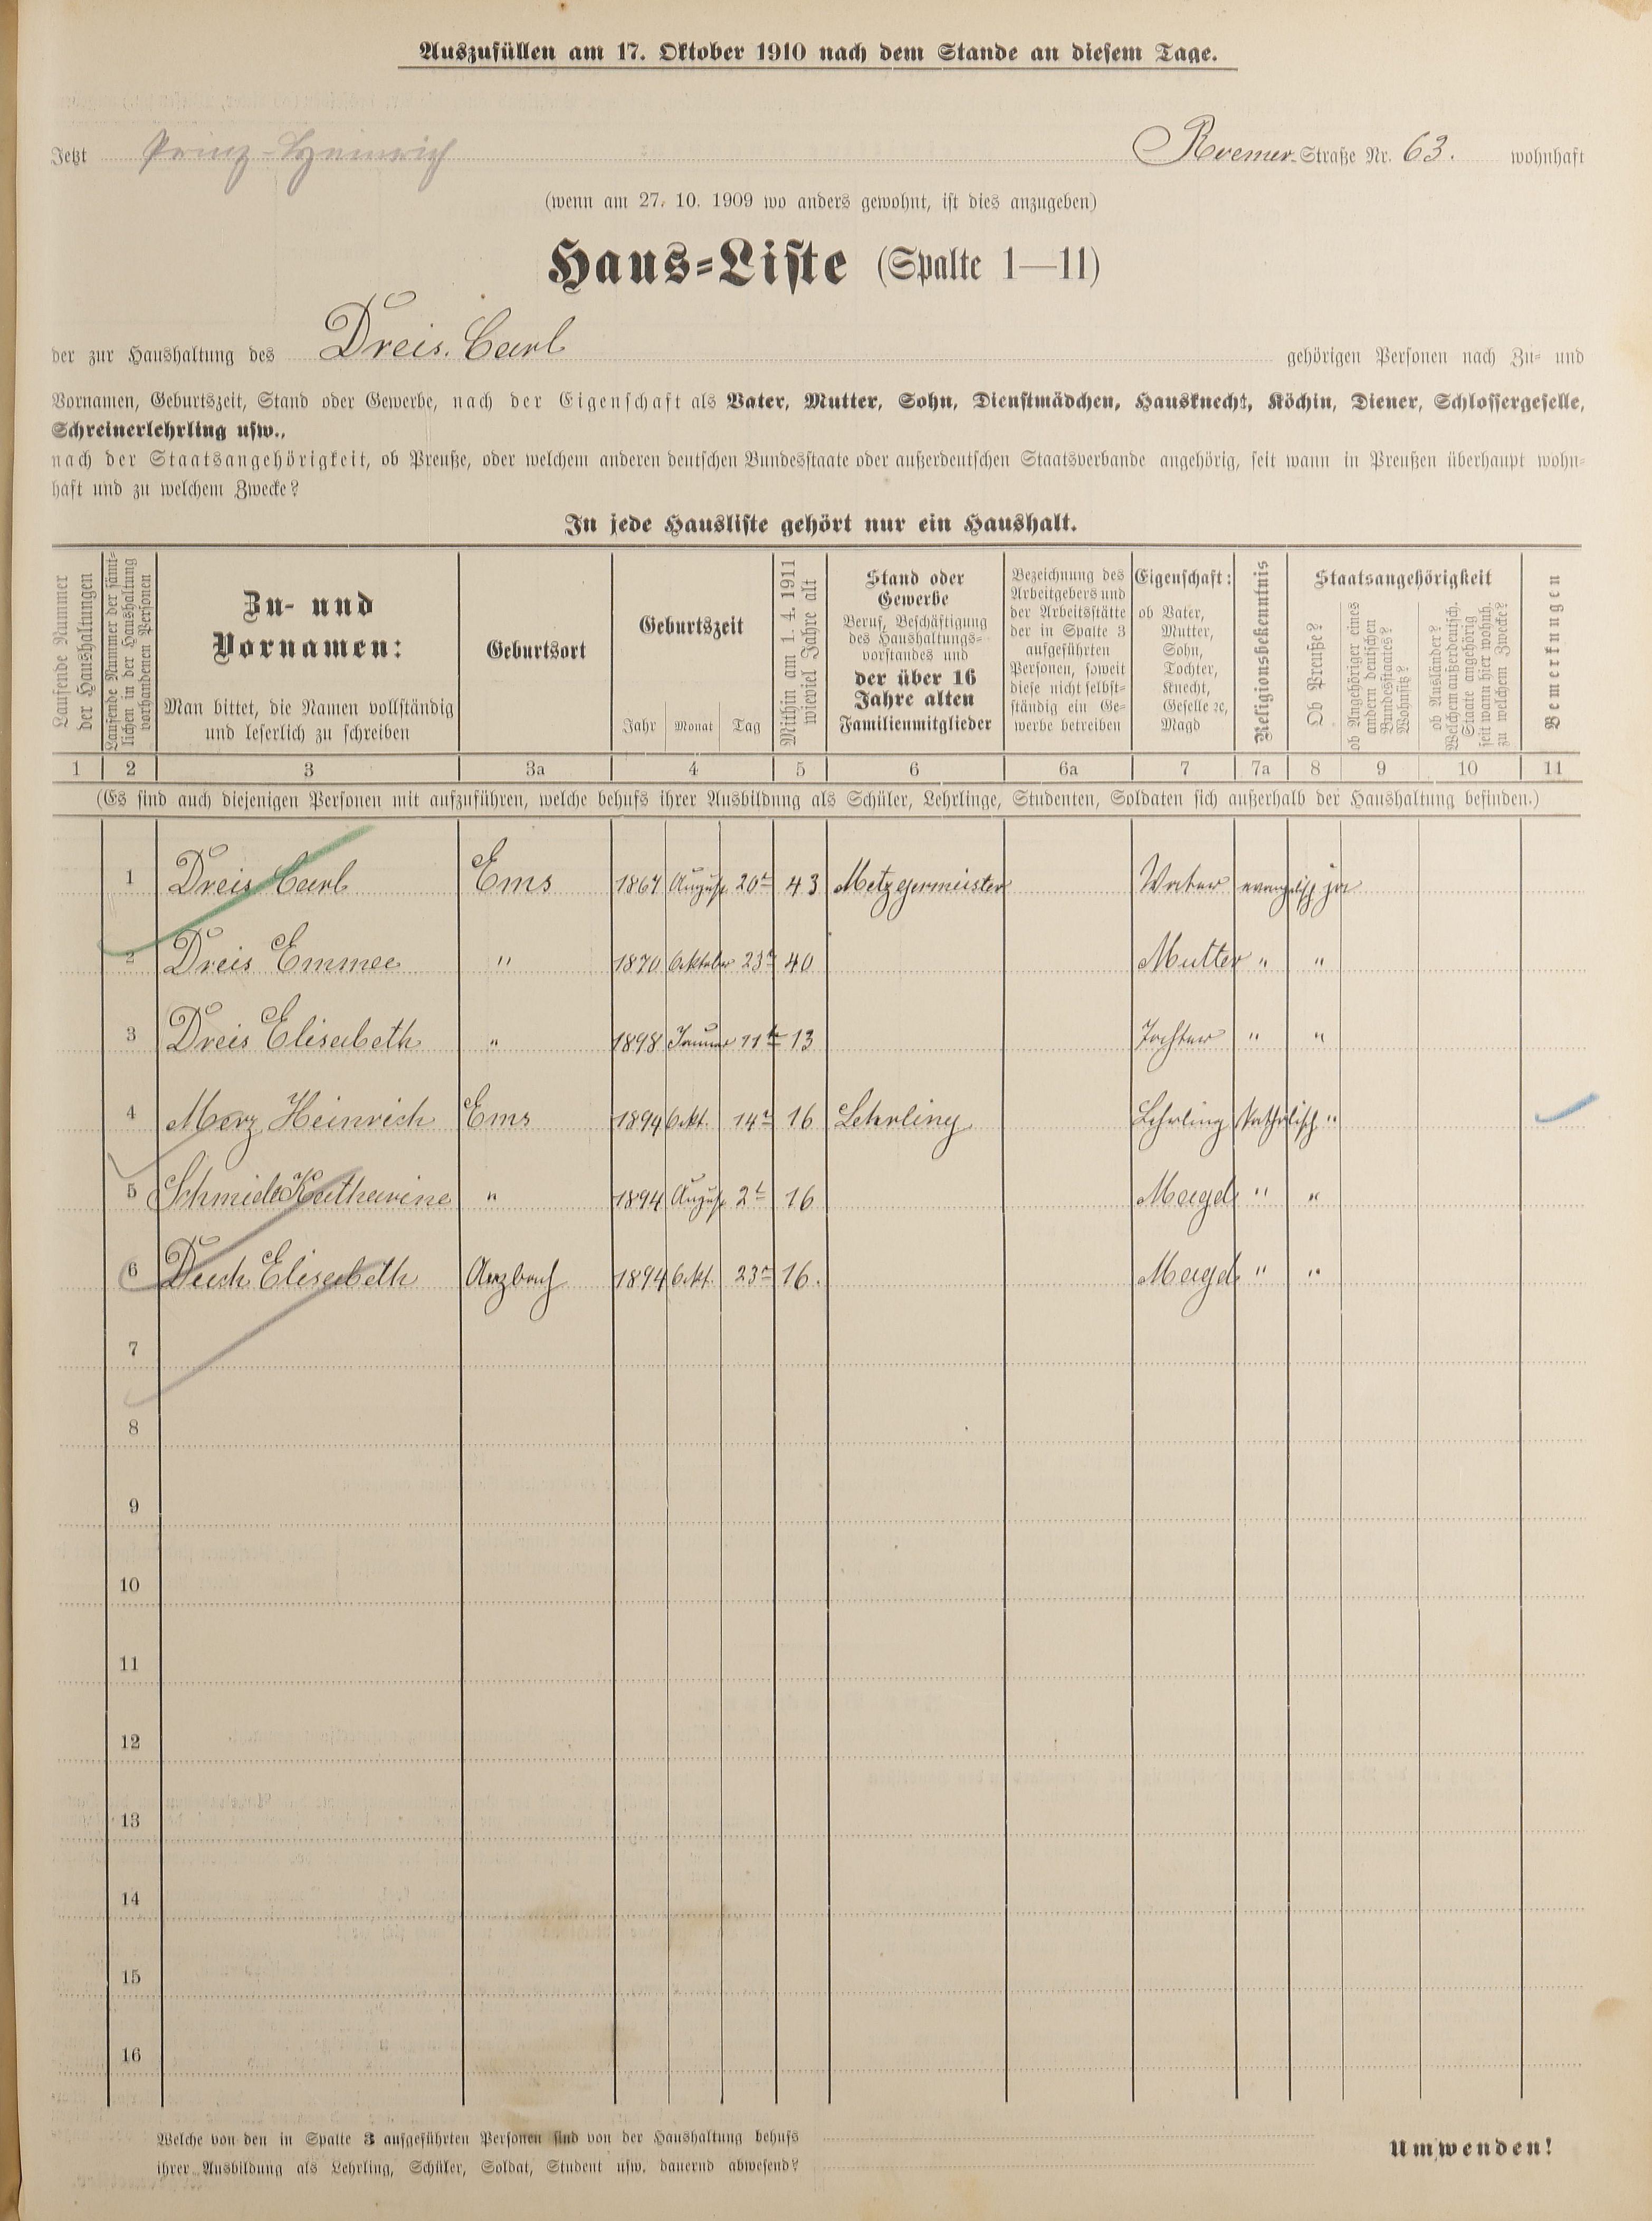 Auszufüllen am 17. Oktober 1910 nach dem Stande an diesem Tage.
Jetzt Prinz-Heinrich Roemer-Straße Nr. 63. wohnhaft
(wenn am 27. 10. 1909 wo anders gewohnt, ist dies anzugeben)
Haus-Liste (Spalte 1—11)
der zur Haushaltung des Dreis. Carl gehörigen Personen nach Zu- und
Vornamen, Geburtszeit, Stand oder Gewerbe, nach der Eigenschaft als Vater, Mutter, Sohn, Dienstmädchen, Hausknecht, Köchin, Diener, Schlossergeselle,
Schreinerlehrling usw.,
nach der Staatsangehörigkeit, ob Preuße, oder welchem anderen deutschen Bundesstaate oder außerdeutschen Staatsverbande angehörig, seit wann in Preußen überhaupt wohn-
haft und zu welchem Zwecke?
In jede Hausliste gehört nur ein Haushalt.
Laufende Nummer
der Haushaltungen
Laufende Nummer der sämt-
lichen in der Haushaltung
vorhandenen Personen
Zu- und
Vornamen:
Man bittet, die Namen vollständig
und leserlich zu schreiben
Geburtsort
Geburtszeit
Jahr Monat Tag
Mithin am 1. 4. 1911
wieviel Jahre alt
Stand oder
Gewerbe
Beruf, Beschäftigung
des Haushaltungs-
vorstandes und
der über 16
Jahre alten
Familienmitglieder
Bezeichnung des
Arbeitgebers und
der Arbeitsstätte
der in Spalte 3
aufgeführten
Personen, soweit
diese nicht selbst-
ständig ein Ge-
werbe betreiben
Eigenschaft:
ob Vater,
Mutter,
Sohn,
Tochter,
Knecht,
Geselle ꝛc,
Magd
Religionsbekenntnis
Staatsangehörigkeit
Ob Preuße?
ob Angehöriger eines
andern deutschen
Bundesstaates?
Wohnsitz?
ob Ausländer?
Welchem außerdeutsch.
Staate angehörig
seit wann hier wohnh.
zu welchem Zwecke?
Bemerkungen
1 2 3 3a 4 5 6 6a 7 7a 8 9 10 11
(Es sind auch diejenigen Personen mit aufzuführen, welche behufs ihrer Ausbildung als Schüler, Lehrlinge, Studenten, Soldaten sich außerhalb der Haushaltung befinden.)
1 Dreis Carl Ems 1867 August 20t 43 Metzgermeister Vater evangelisch ja
2 Dreis Emmee " 1870 Oktober 23t 40 Mutter " "
3 Dreis Elisabeth " 1898 Januar 11t 13 Tochter " "
4 Merz Heinrich Ems 1894 Okt. 14t 16 Lehrling Lehrling Katholisch "
5 Schmidt Katharina " 1894 August 2t 16 Magd " "
6 Elisabeth Arzbach 1894 Okt. 23t 16. Magd " "
7
8
9
10
11
12
13
14
15
16
Welche von den in Spalte 3 aufgeführten Personen sind von der Haushaltung behufs
ihrer Ausbildung als Lehrling, Schüler, Soldat, Student usw. dauernd abwesend?
Umwenden!